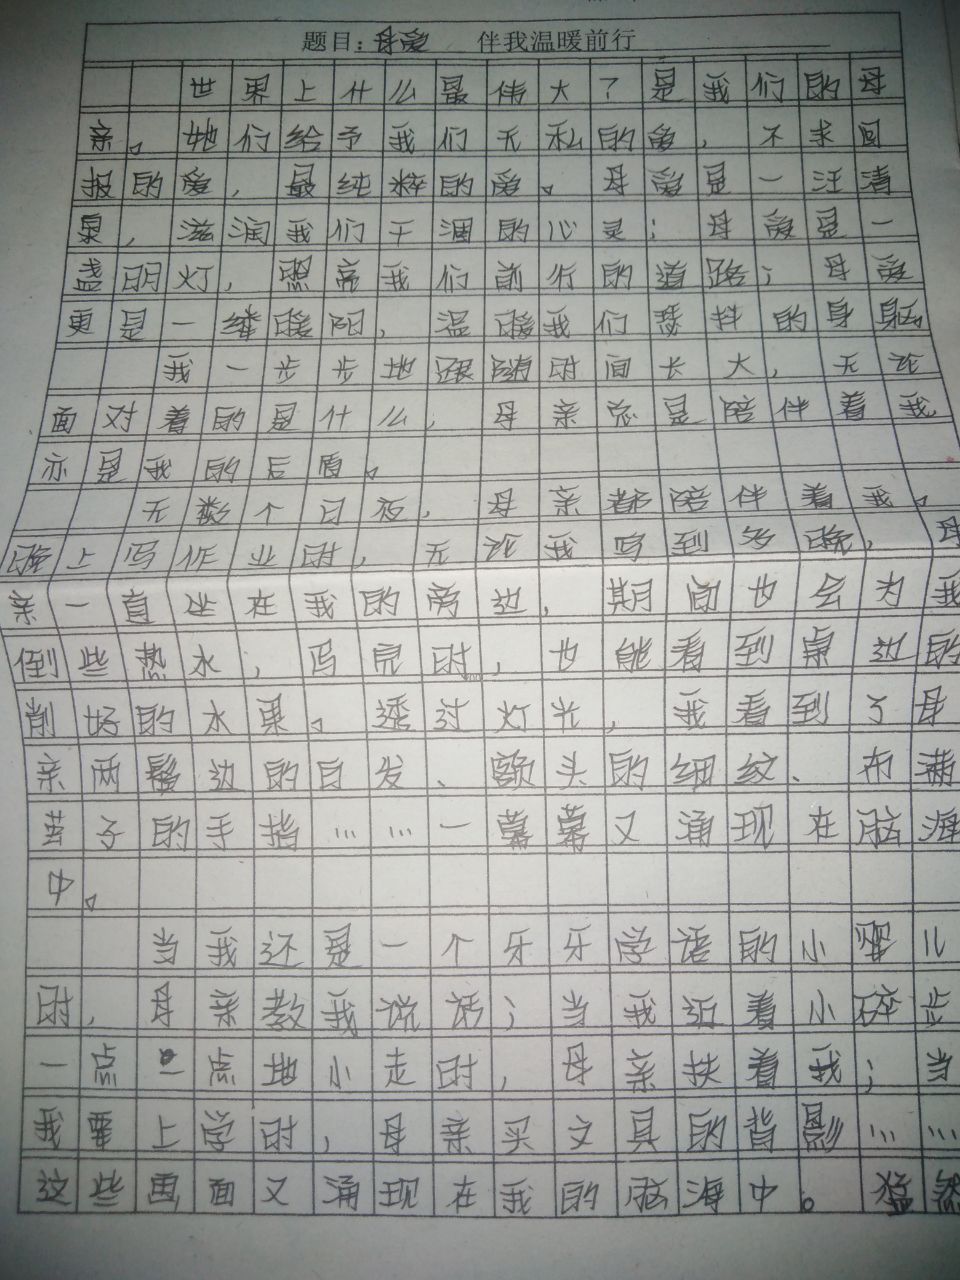 题目:母爱 伴我温暖前行
世界上什么最伟大?是我们的母
亲。她们给予我们无私的爱,不求回
报的爱,最纯粹的爱。母爱是一汪清
泉,滋润我们干涸的心灵;母爱是一
盏明灯,照亮我们前行的道路;母爱
更是一缕暖阳,温暖我们颤抖的身躯。
我一步步地跟随时间长大,无论
面对着的是什么,母亲总是陪伴着我
亦是我的后盾。
无数个日夜,母亲都陪伴着我。
晚上写作业时,无论我写到多晚,母
亲一直坐在我的旁边,期间也会为我
倒些热水,写完时,也能看到桌边的
削好的水果。透过灯光,我看到了母
亲两鬓边的白发、额头的细纹、布满
茧子的手指……一幕幕又涌现在脑海
中。
当我还是一个牙牙学语的小婴儿
时,母亲教我说话;当我迈着小碎步
一点一点地小走时,母亲扶着我;当
我要上学时,母亲买文具的背影……
这些画面又涌现在我的脑海中。猛然